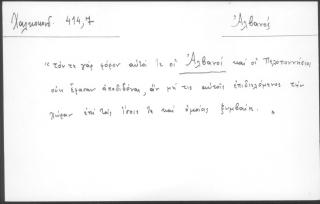 Χαλκοκονδ. 414,7 Ἀλβανός
"τόν τε γὰρ φόρον αὐτοί τε οἱ Ἀλβανοί καὶ οἱ Πελοποννήσιοι
οὐκ ἔφασαν ἀποδιδόναι, ἂν μή τις αὐτοῖς ἐπιδηλόμενος τὴν
χώραν ἐπὶ τοῖς ἴσοις τε καὶ ὁμοίοις ξυμβαίη."